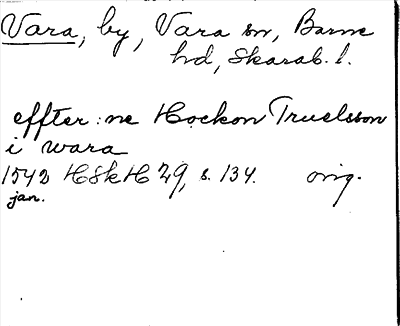 Vara, by, Vara sn, Barne
hd, Skarab. l.
effter: ne Hockon Truelsson
i wara
1542 HSkH 29, s. 134. orig.
jan.